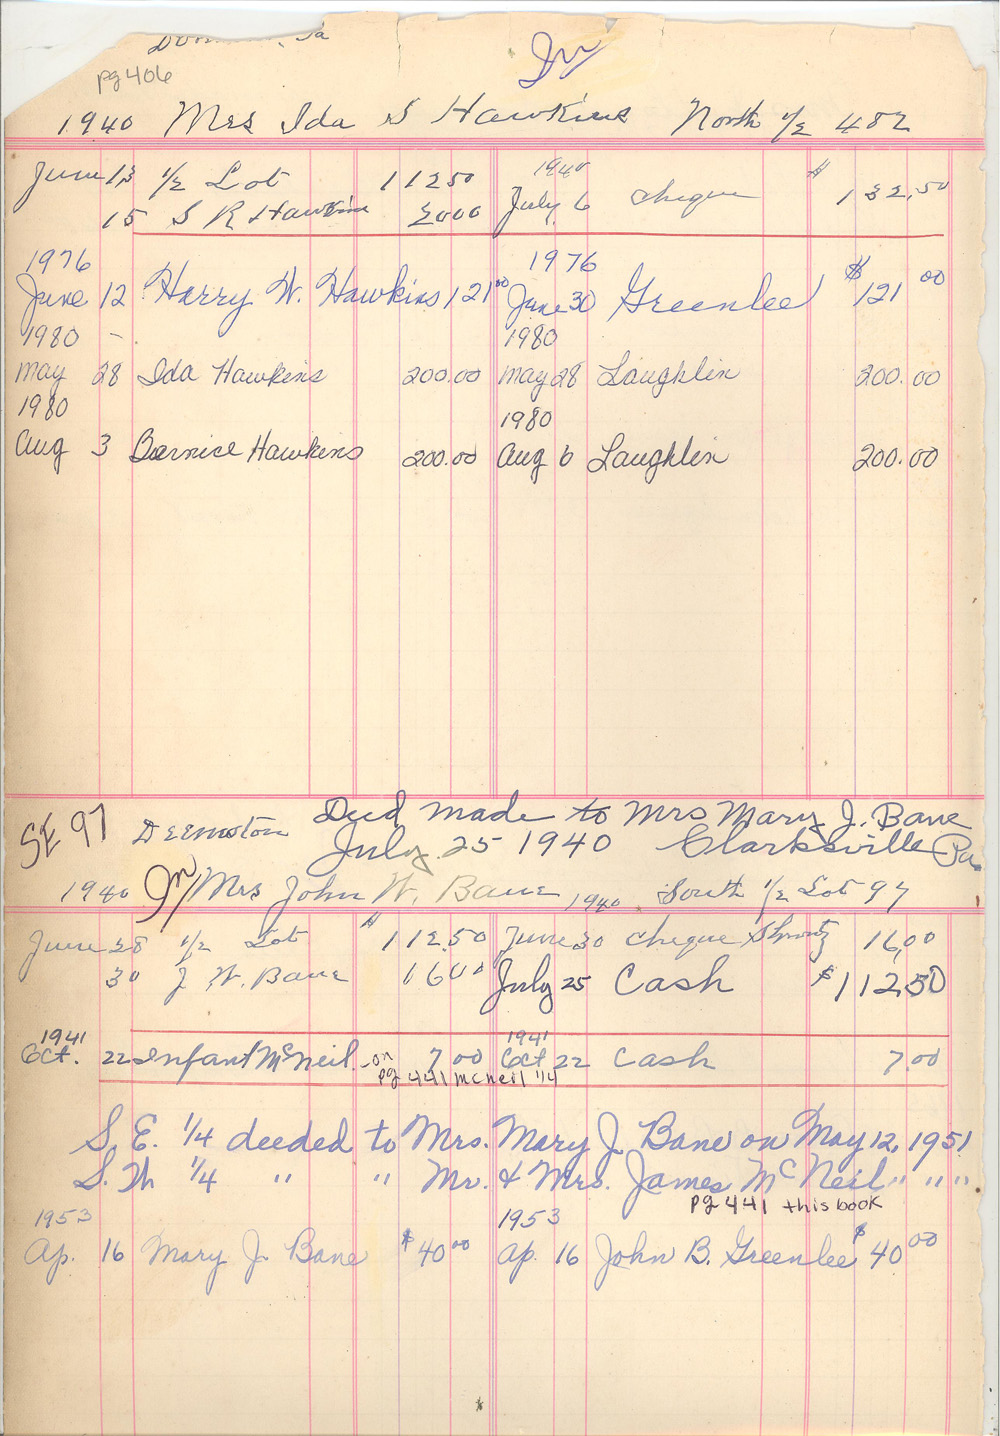 Pa
Jn
pg 406
1940 Mrs Ida S Hawkins North 1/2 482
June 13 1/2 Lot 112 50 1940 July 6 cheque $ 132.50
15 S R Hawkins 20 00
1976 1976
June 12 Harry W. Hawkins 121 00 June 30 Greenlee $ 121 00
1980 - 1980
May 28 Ida Hawkins 200.00 May 28 Laughlin 200.00
1980 1980
Aug 3 Bernice Hawkins 200.00 Aug 6 Laughlin 200.00
SE 97 Deemston Deed made to Mrs Mary J. Bane
July 25 1940 Clarksville Pa.
1940 Jn Mrs John W. Bane 1940 South 1/2 Lot 97
June 28 1/2 Lot $ 112.50 June 30 cheque 16,00
30 J. W. Bane 16 00 July 25 Cash $ 112,50
1941 1941
Oct. 22 Infant McNeil - on 7.00 Oct 22 Cash 7.00
pg 441 McNeil 1/4
S. E. 1/4 deeded to Mrs. Mary J. Bane on May 12, 1951
S. W 1/4 " " Mr. & Mrs. James McNeil " " "
pg 441 this book
1953 1953
Ap. 16 Mary J. Bane $ 40 00 Ap. 16 John B. Greenlee $ 40 00